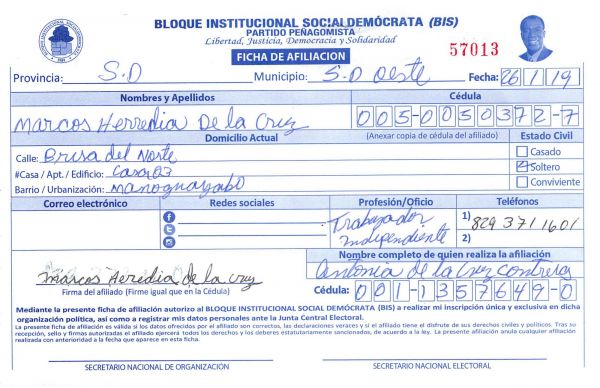 BLOQUE INSTITUCIONAL SOCIALDEMÓCRATA (BIS)
PARTIDO PEÑAGOMISTA
Libertad, Justicia, Democracia y Solidaridad
FICHA DE AFILIACION
57013
Provincia: S.D Municipio: S.D Oeste Fecha: 26/1/19
Nombres y Apellidos Cédula
Marcos Herredia De la Cruz 005-0050372-7
Domicilio Actual (Anexar copia de cédula del afiliado) Estado Civil
Calle: Brisa del Norte Casado
#Casa / Apt. / Edificio: Casa 03 Soltero
Barrio / Urbanización: Manoguayabo Conviviente
Correo electrónico Redes sociales Profesión/Oficio Teléfonos
Trabajador 1) 829 371 1601
Independiente 2)
Nombre completo de quien realiza la afiliación
Marcos Heredia de la cruz Antonia de la Cruz Contrera
Firma del afiliado (Firme igual que en la Cédula) Cédula: 001-1357649-0
Mediante la presente ficha de afiliación autorizo al BLOQUE INSTITUCIONAL SOCIAL DEMÓCRATA (BIS) a realizar mi inscripción única y exclusiva en dicha
organización política, así como a registrar mis datos personales ante la Junta Central Electoral.
La presente ficha de afiliación es válida si los datos ofrecidos por el afiliado son correctos, las declaraciones veraces y si el afiliado tiene el disfrute de sus derechos civiles y políticos. Tras su
recepción, sello y firmas autorizadas el afiliado ejercerá todos los derechos y los deberes estatutariamente sancionados, de acuerdo a la ley. La presente afiliación anula cualquier afiliación
realizada con anterioridad a la fecha que aparece en esta ficha.
SECRETARIO NACIONAL DE ORGANIZACIÓN SECRETARIO NACIONAL ELECTORAL